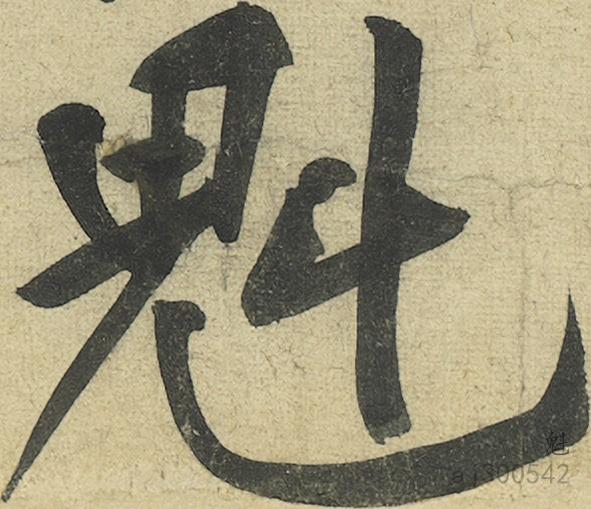 魁
魁
a1300542